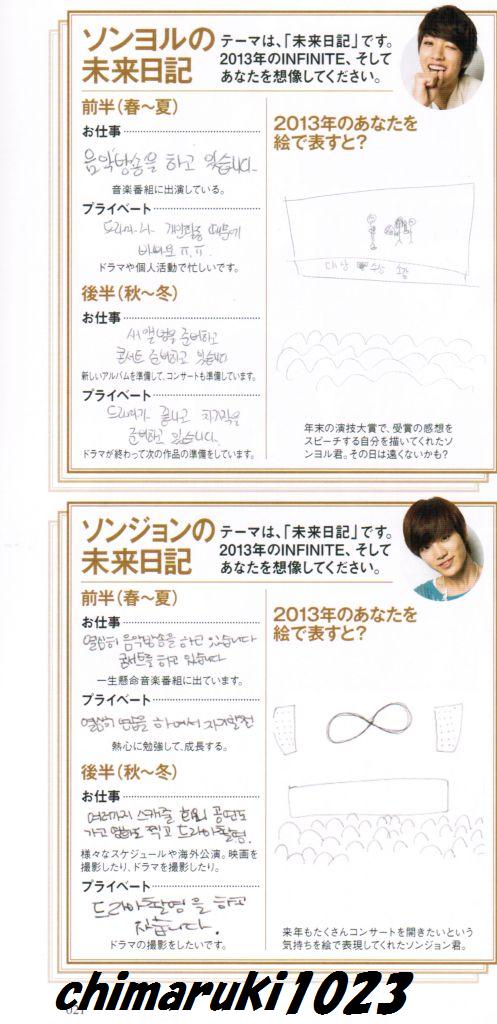 ソンヨルの
未来日記
テーマは、「未来日記」です。
2013年のINFINITE、そして
あなたを想像してください。
前半（春〜夏）
お仕事
음악방송을 하고 있습니다.
音楽番組に出演している。
プライベート
드라마나 개인활동 때문에
바빠요 ㅠ.ㅠ.
ドラマや個人活動で忙しいです。
後半（秋〜冬）
お仕事
새 앨범을 준비하고
콘서트 준비하고 있습니다
新しいアルバムを準備して、コンサートも準備しています。
プライベート
드라마가 끝나고 차기작을
준비하고 있습니다.
ドラマが終わって次の作品の準備をしています。
2013年のあなたを
絵で表すと？
대상 수상 소감
年末の演技大賞で、受賞の感想を
スピーチする自分を描いてくれたソ
ンヨル君。その日は遠くないかも？
ソンジョンの
未来日記
テーマは、「未来日記」です。
2013年のINFINITE、そして
あなたを想像してください。
前半（春〜夏）
お仕事
열심히 음악방송을 하고 있습니다
콘서트를 하고 있습니다
一生懸命音楽番組に出ています。
プライベート
열심히 연습을 하여서 자기발전
熱心に勉強して、成長する。
後半（秋〜冬）
お仕事
여러가지 스케줄 해외 공연도
가고 영화도 찍고 드라마촬영.
様々なスケジュールや海外公演。映画を
撮影したり、ドラマを撮影したり。
プライベート
드라마촬영을 하고
싶습니다.
ドラマの撮影をしたいです。
2013年のあなたを
絵で表すと？
来年もたくさんコンサートを開きたいという
気持ちを絵で表現してくれたソンジョン君。
chimaruki1023
021